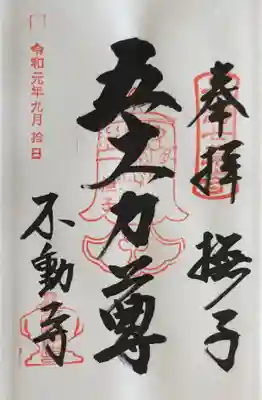 奉拝 撫子
五大力尊
不動寺
令和元年九月拾日